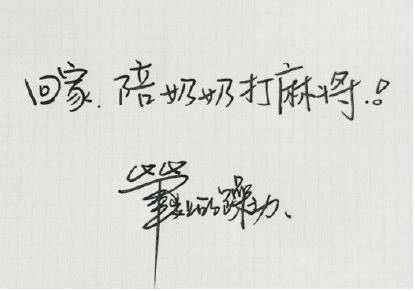 回家.陪奶奶打麻将.。
笔尖上的躁动、